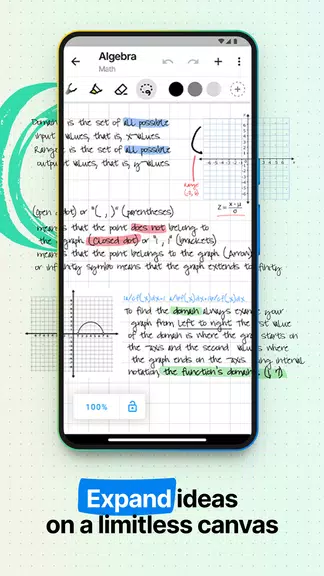 Algebra
Math
Domain is the set of all possible
input values, that is, x-values
Range is the set of all possible
output values, that is, y-values
Range
Z = x - μ / σ
(open dot) or "( , )" (parentheses)
means that the point does not belong to
the graph (Closed dot) or "[ , ]" (brackets)
means that the point belongs to the graph (Arrow)
or infinity symbol means that the graph extends to infinity
To find the domain always examine your
graph from left to right The first value
of the domain is where the graph starts on
the -axis and the second values where
the graph ends on the -axis using interval
notation, the function's domain
100%
Expand ideas
on a limitless canvas